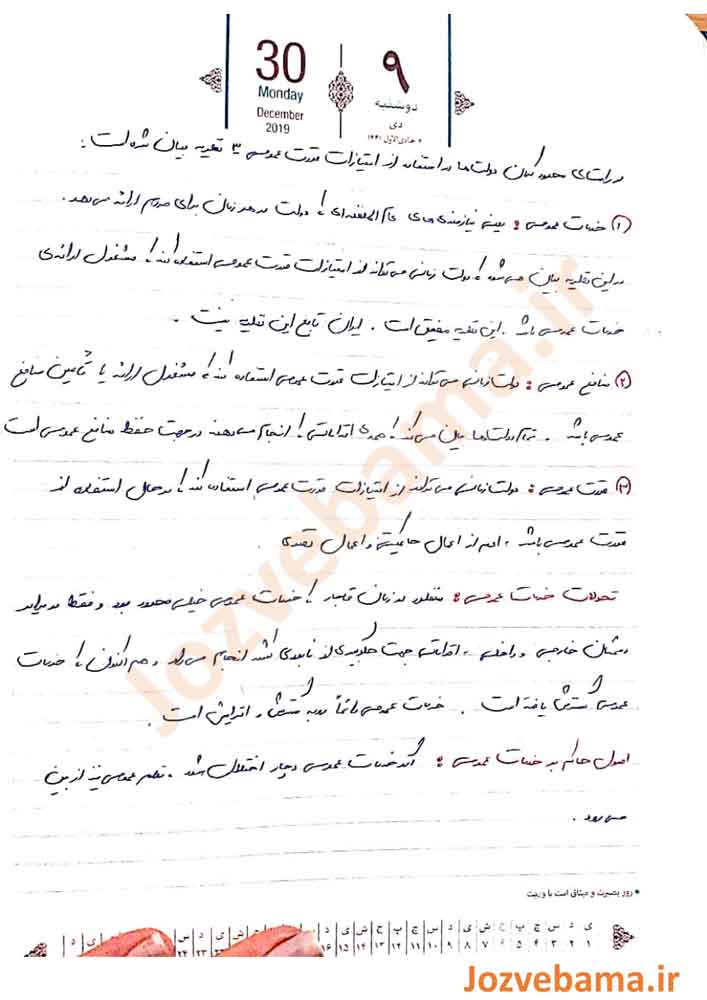 30
Monday
December
2019
۹
دوشنبه
دی
۳ جمادی الاول ۱۴۴۱
در راستای محدود کردن دولت‌ها در استفاده از امتیازات قدرت عمومی ۳ نظریه بیان شده است :
① خدمات عمومی : یعنی نیازمندی‌های عام‌المنفعه‌ای که دولت در هر زمان برای مردم ارائه می‌دهد.
در این نظریه بیان می‌شود که دولت زمانی می‌تواند از امتیازات قدرت عمومی استفاده کند که مشغول ارائه‌ی
خدمات عمومی باشد. این نظریه مضیق است. ایران تابع این نظریه نیست.
② منافع عمومی : دولت زمانی می‌تواند از امتیازات قدرت عمومی استفاده کند که مشغول ارائه یا تأمین منافع
عمومی باشد. تمام دولت‌ها بیان می‌کند که همه‌ی اقداماتی که انجام می‌دهند در جهت حفظ منافع عمومی است
③ قدرت عمومی : دولت زمانی می‌تواند از امتیازات قدرت عمومی استفاده کند که در حال استفاده از
قدرت عمومی باشد، اعم از اعمال حاکمیتی و اعمال تصدی.
تحولات خدمات عمومی : در زمان قاجار که خدمات عمومی خیلی محدود بود و فقط در برابر
دشمنان خارجی و داخلی، اقداماتی جهت جلوگیری از نابودی کشور انجام می‌شد و هم اکنون که خدمات
عمومی گسترش یافته است. خدمات عمومی دائماً رو به گسترش و افزایش است.
اصول حاکم بر خدمات عمومی : اگر خدمات عمومی دچار اختلال شود، نظم عمومی نیز از بین
می‌رود.
روز بصیرت و میثاق امت با ولایت
ی د س چ پ ج ش ی د س چ پ ج ش ی د
۱ ۲ ۳ ۴ ۵ ۶ ۷ ۸ ۹ ۱۰ ۱۱ ۱۲ ۱۳ ۱۴ ۱۵ ۱۶
Jozvebama.ir
Jozvebama.ir